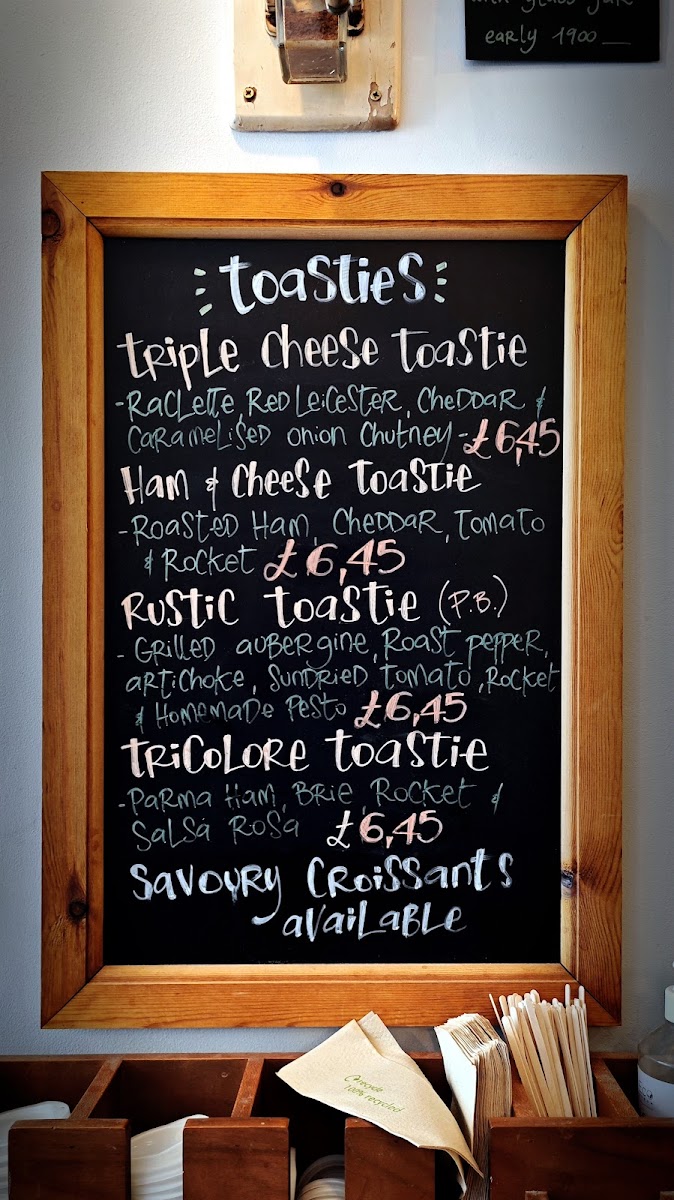 with glass jar
early 1900
Toasties
Triple Cheese Toastie
- Raclette, Red Leicester, Cheddar &
Caramelised onion Chutney - £6,45
Ham & Cheese Toastie
- Roasted Ham, Cheddar, Tomato
& Rocket £6,45
Rustic Toastie (P.B.)
- Grilled aubergine, Roast pepper,
artichoke, sundried tomato, Rocket
& Homemade pesto £6,45
Tricolore Toastie
- Parma Ham, Brie, Rocket &
Salsa Rosa £6,45
Savoury Croissants
available
recycle
100% recycled